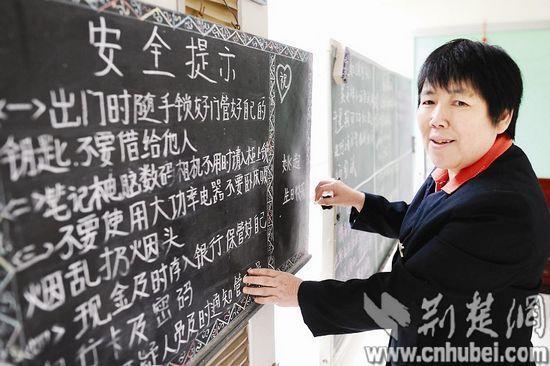 安全提示
<一>出门时随手锁好门管好自己的
钥匙.不要借给他人
笔记本电脑数码相机不用时请入柜上锁
<三>不要使用大功率电器不要卧床吸
烟乱扔烟头
现金及时存入银行保管好自己
行卡及密码
疑人员及时通知管
祝
生日快乐
荆楚網
www.cnhubei.com